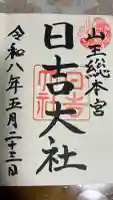 山王総本宮
日吉大社
令和八年五月二十三日